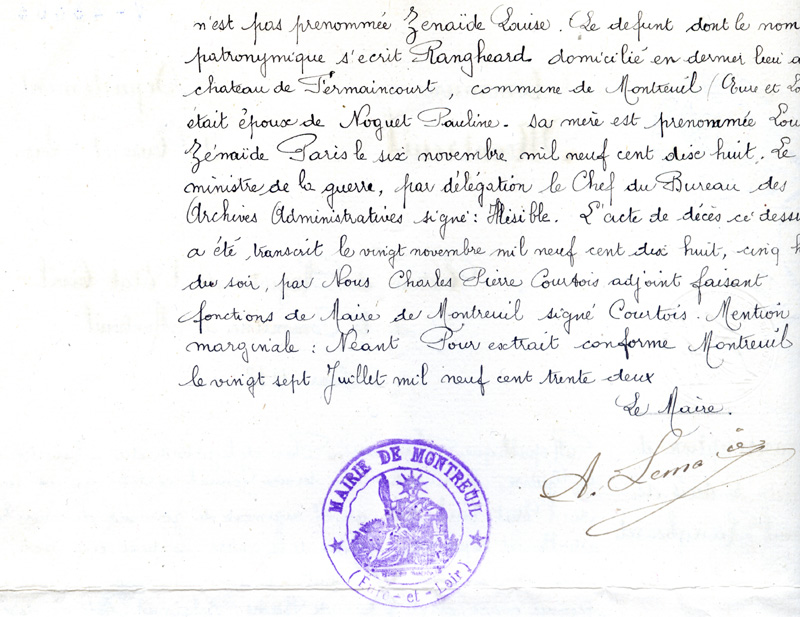 n'est pas prenommée Zenaïde Louise. Le defunt dont le nom
patronymique s'ecrit Rangheard domicilié en dernier lieu a
chateau de Fermaincourt, commune de Montreuil (Eure et Lo
était époux de Noguet Pauline. sa mère est prenommée Lou
Zénaïde Paris le six novembre mil neuf cent dix huit. Le
ministre de la guerre, par délégation le Chef du Bureau des
Archives Administratives signé : Illisible. L'acte de décès ci dessu
a été transcrit le vingt novembre mil neuf cent dix huit, cinq h
du soir, par Nous Charles Pierre Courtois adjoint faisant
fonctions de Maire de Montreuil signé Courtois. Mention
marginale : Néant Pour extrait conforme Montreuil
le vingt sept Juillet mil neuf cent trente deux
Le Maire.
A.
MAIRIE DE MONTREUIL
(Eure-et-Loir)